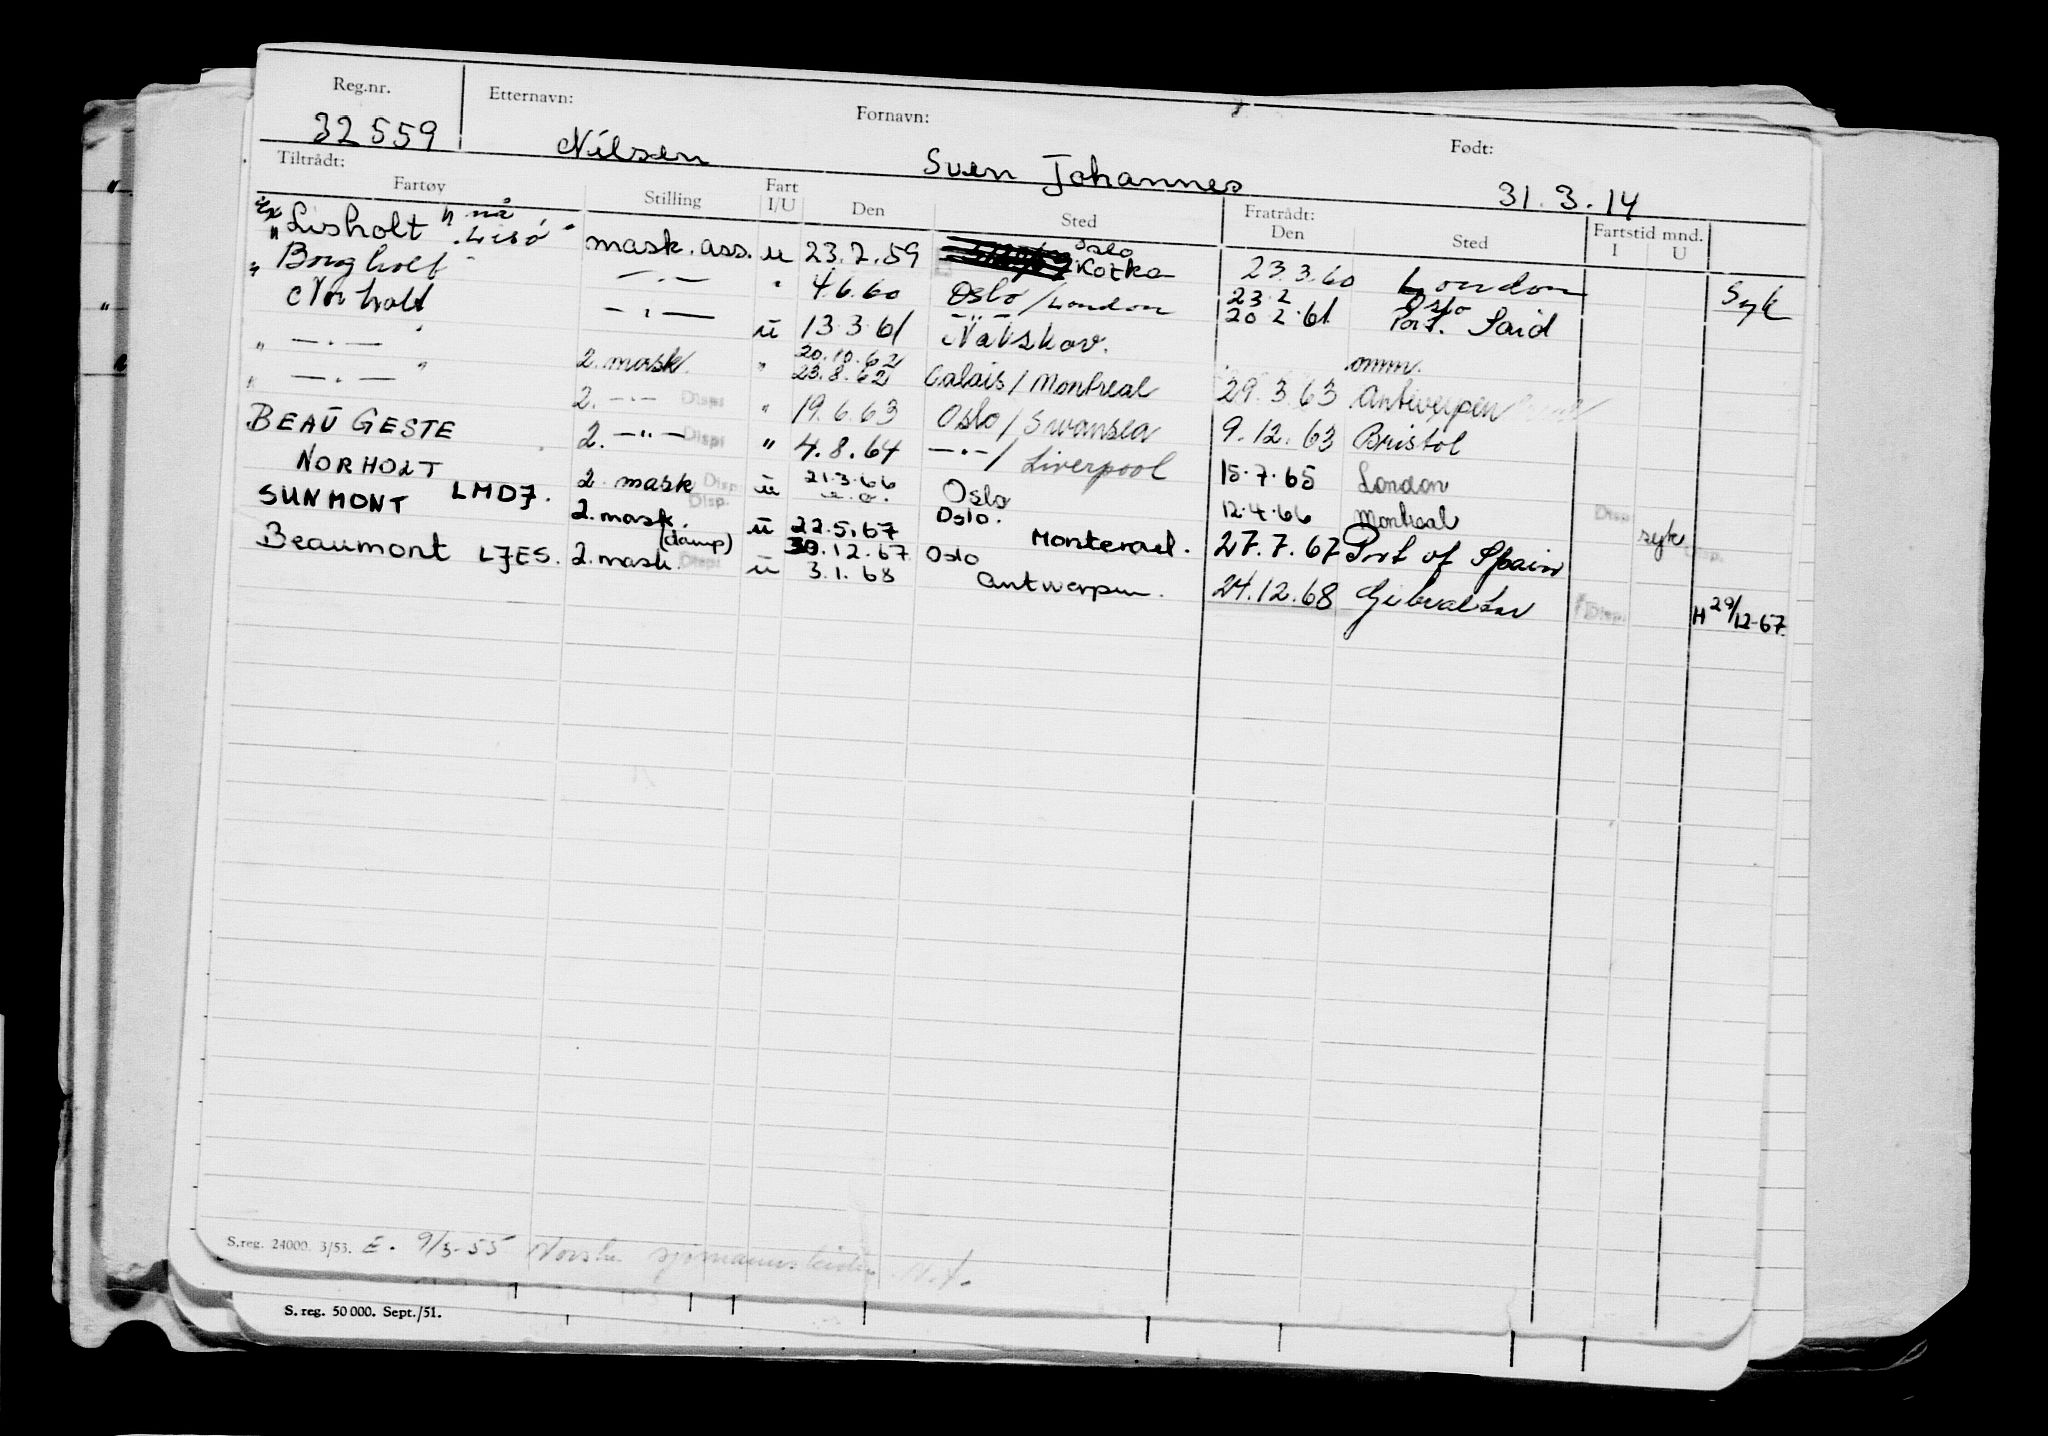 Reg.nr. Etternavn: Fornavn: Født:
32559 Nilsen Sven Johannes 31.3.14
Tiltrådt: Fratrådt: Fartstid mnd.
Fartøy Stilling Fart I/U Den Sted Den Sted I U
"Lisholt" nå "Lisö" mask. ass. u 23.2.59 Oslo Kotka 23.3.60 London Syk
" Borgholt — . — " 4.6.60 Oslo / London 23.2 20.2.61 Oslo Port. Said
" Norholt — . — u 13.3.61 Nakskov. omm.
" — . — " 2. mask. " 20.10.62 23.8.62 Calais / Montreal 29.3.63 Antwerpen
" — . — 2. — . — Disp " 19.6.63 Oslo / Swansea 9.12.63 Bristol
BEAU GESTE 2. — " — Disp " 4.8.64 — . — / Liverpool 15.7.65 London
NORHOLT 2. mask Disp. u 21.3.66 Oslo 12.4.66 Montreal Disp. syk
SUNMONT LMDJ. 2. mask. (damp) Disp. u 22.5.67 Oslo. Monteral. 27.7.67 Port of Spain Disp.
Beaumont LJES. 2. mask. Disp. u 30.12.67 3.1.68 Oslo Antwerpen. 24.12.68 Gibraltar Disp. H 29/12-67.
S.reg. 24000. 3/53. E. 9/3-55 Norske
S. reg. 50 000. Sept./51.